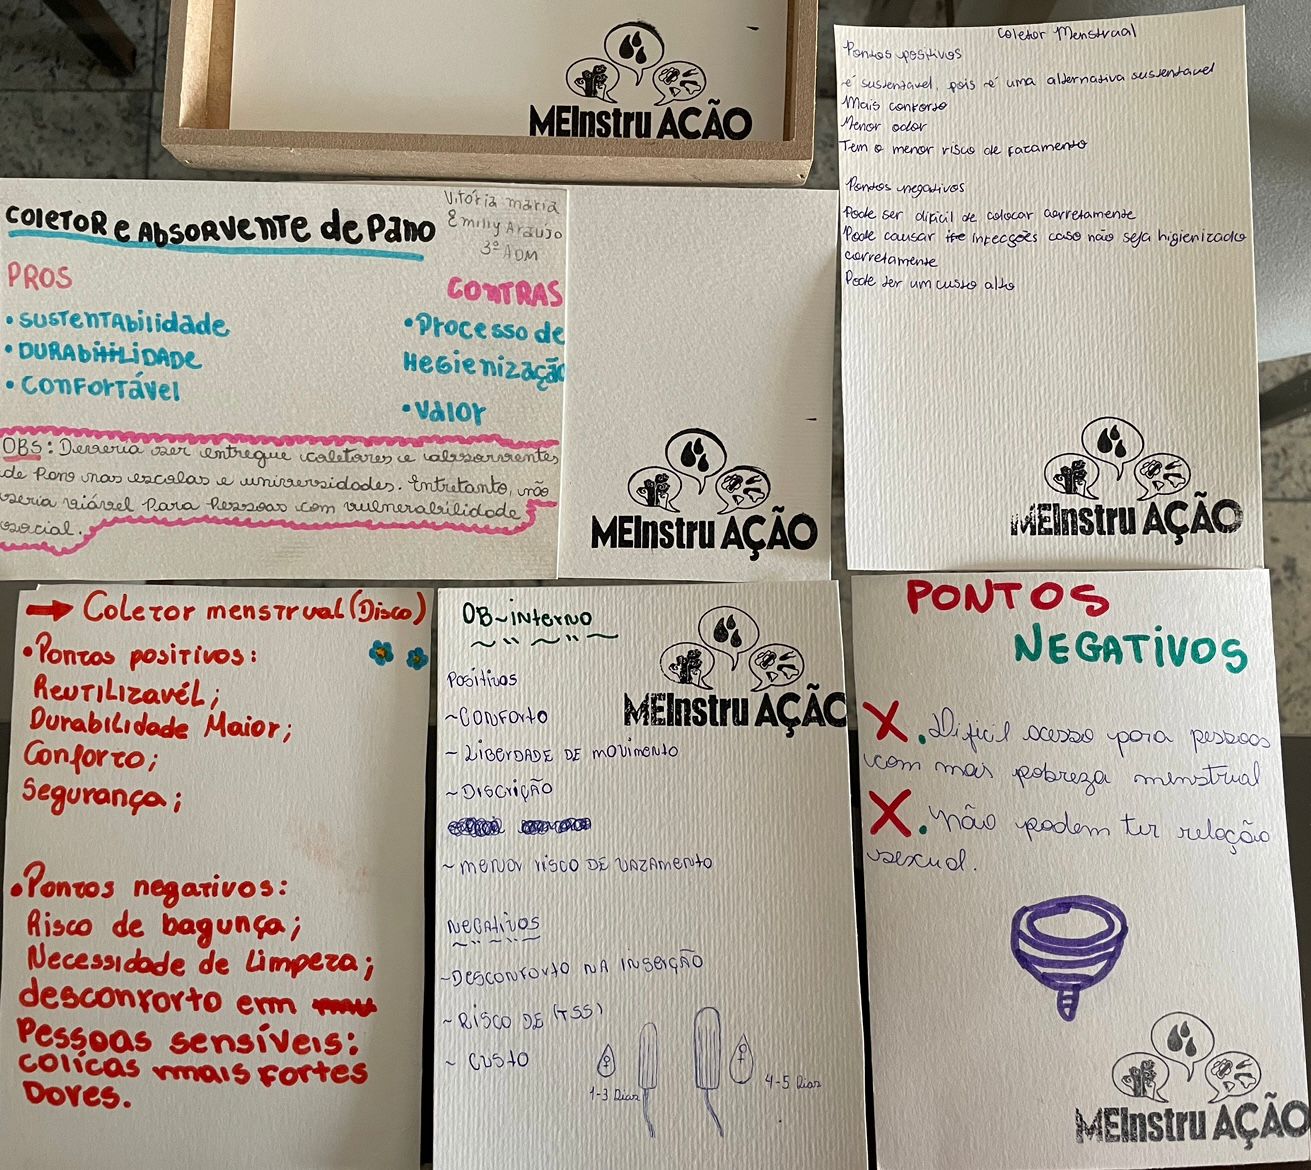 MEInstru AÇÃO
Coletor Menstrual
Pontos positivos
é sustentavel, pois é uma alternativa sustentavel
Mais conforto
Menor odor
Tem o menor risco de
Pontos negativos
Pode ser dificil de colocar corretamente
Pode causar infecções caso não seja higienizado
corretamente
Pode ter um custo alto
MEInstru AÇÃO
COLETOR e ABSORVENTE de PANO
Vitória maria
Emilly Araujo
3º ADM
PROS
• SUSTENTABILIDADE
• DURABILIDADE
• CONFORTÁVEL
CONTRAS
• Processo de
HeGienização
• Valor
OBS: Deveria ser entregue coletores e absorventes
de Pano nas escolas e universidades. Entretanto, não
seria viável Para Pessoas com vulnerabilidade
social.
MEInstru AÇÃO
→ Coletor menstrual (Disco)
• Pontos positivos:
ReutilizavéL;
Durabilidade Maior;
Conforto;
Segurança;
• Pontos negativos:
Risco de bagunça;
Necessidade de Limpeza;
desconforto em
Pessoas sensíveis:
colicas mais fortes
Dores.
OB-interno
MEInstru AÇÃO
Positivos
~ Conforto
~ Liberdade de movimento
~ Discrição
~ menor risco de vazamento
Negativos
~ Desconforto na inserção
~ Risco de (TSS)
~ Custo
1-3 Dias
4-5 Dias
PONTOS
NEGATIVOS
X. Dificil acesso para pessoas
com mais pobreza menstrual
X. não podem ter relação
sexual.
MEInstru AÇÃO